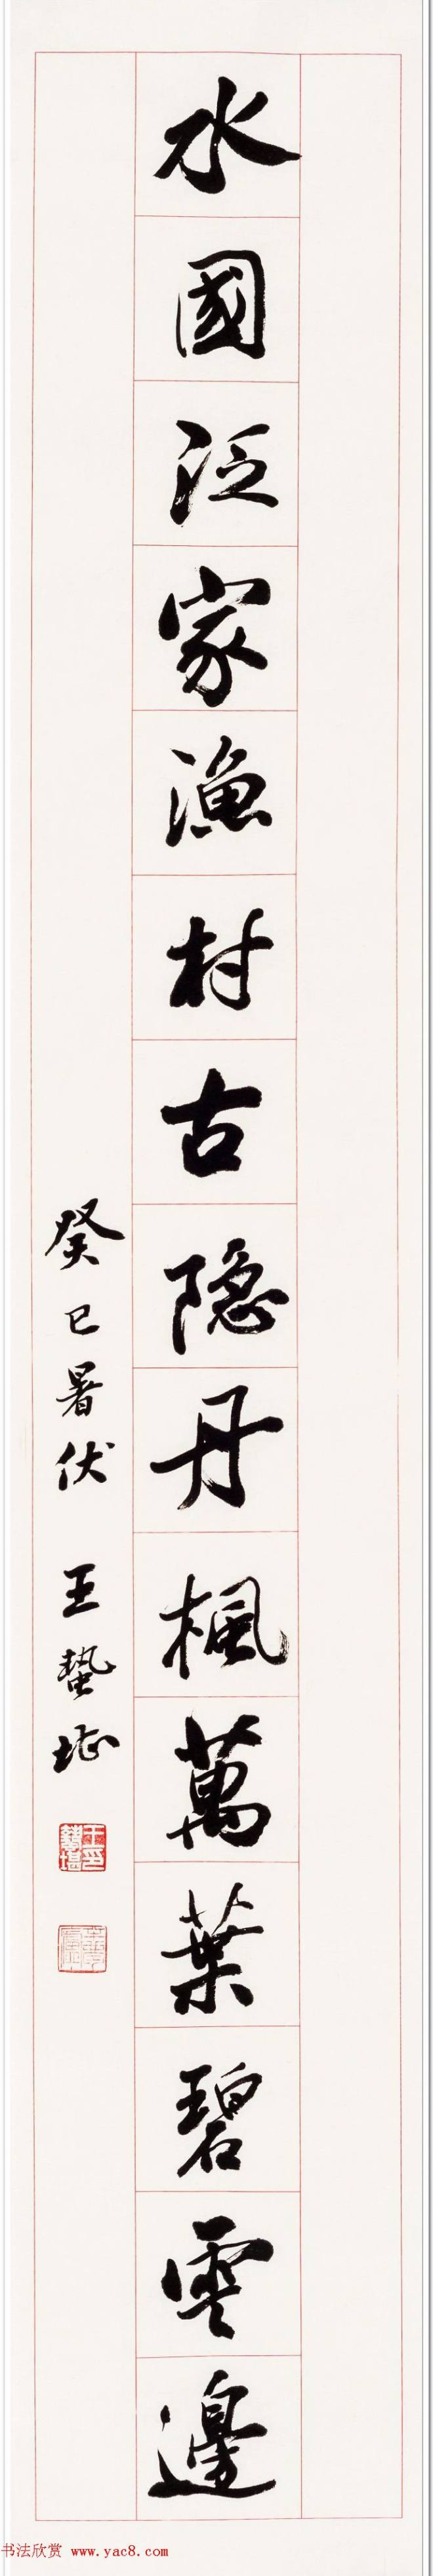 水國泛家漁村古隐丹楓萬葉碧雲邊
癸巳暑伏 王蟄堪
王印蟄堪
书法欣赏 www.yac8.com